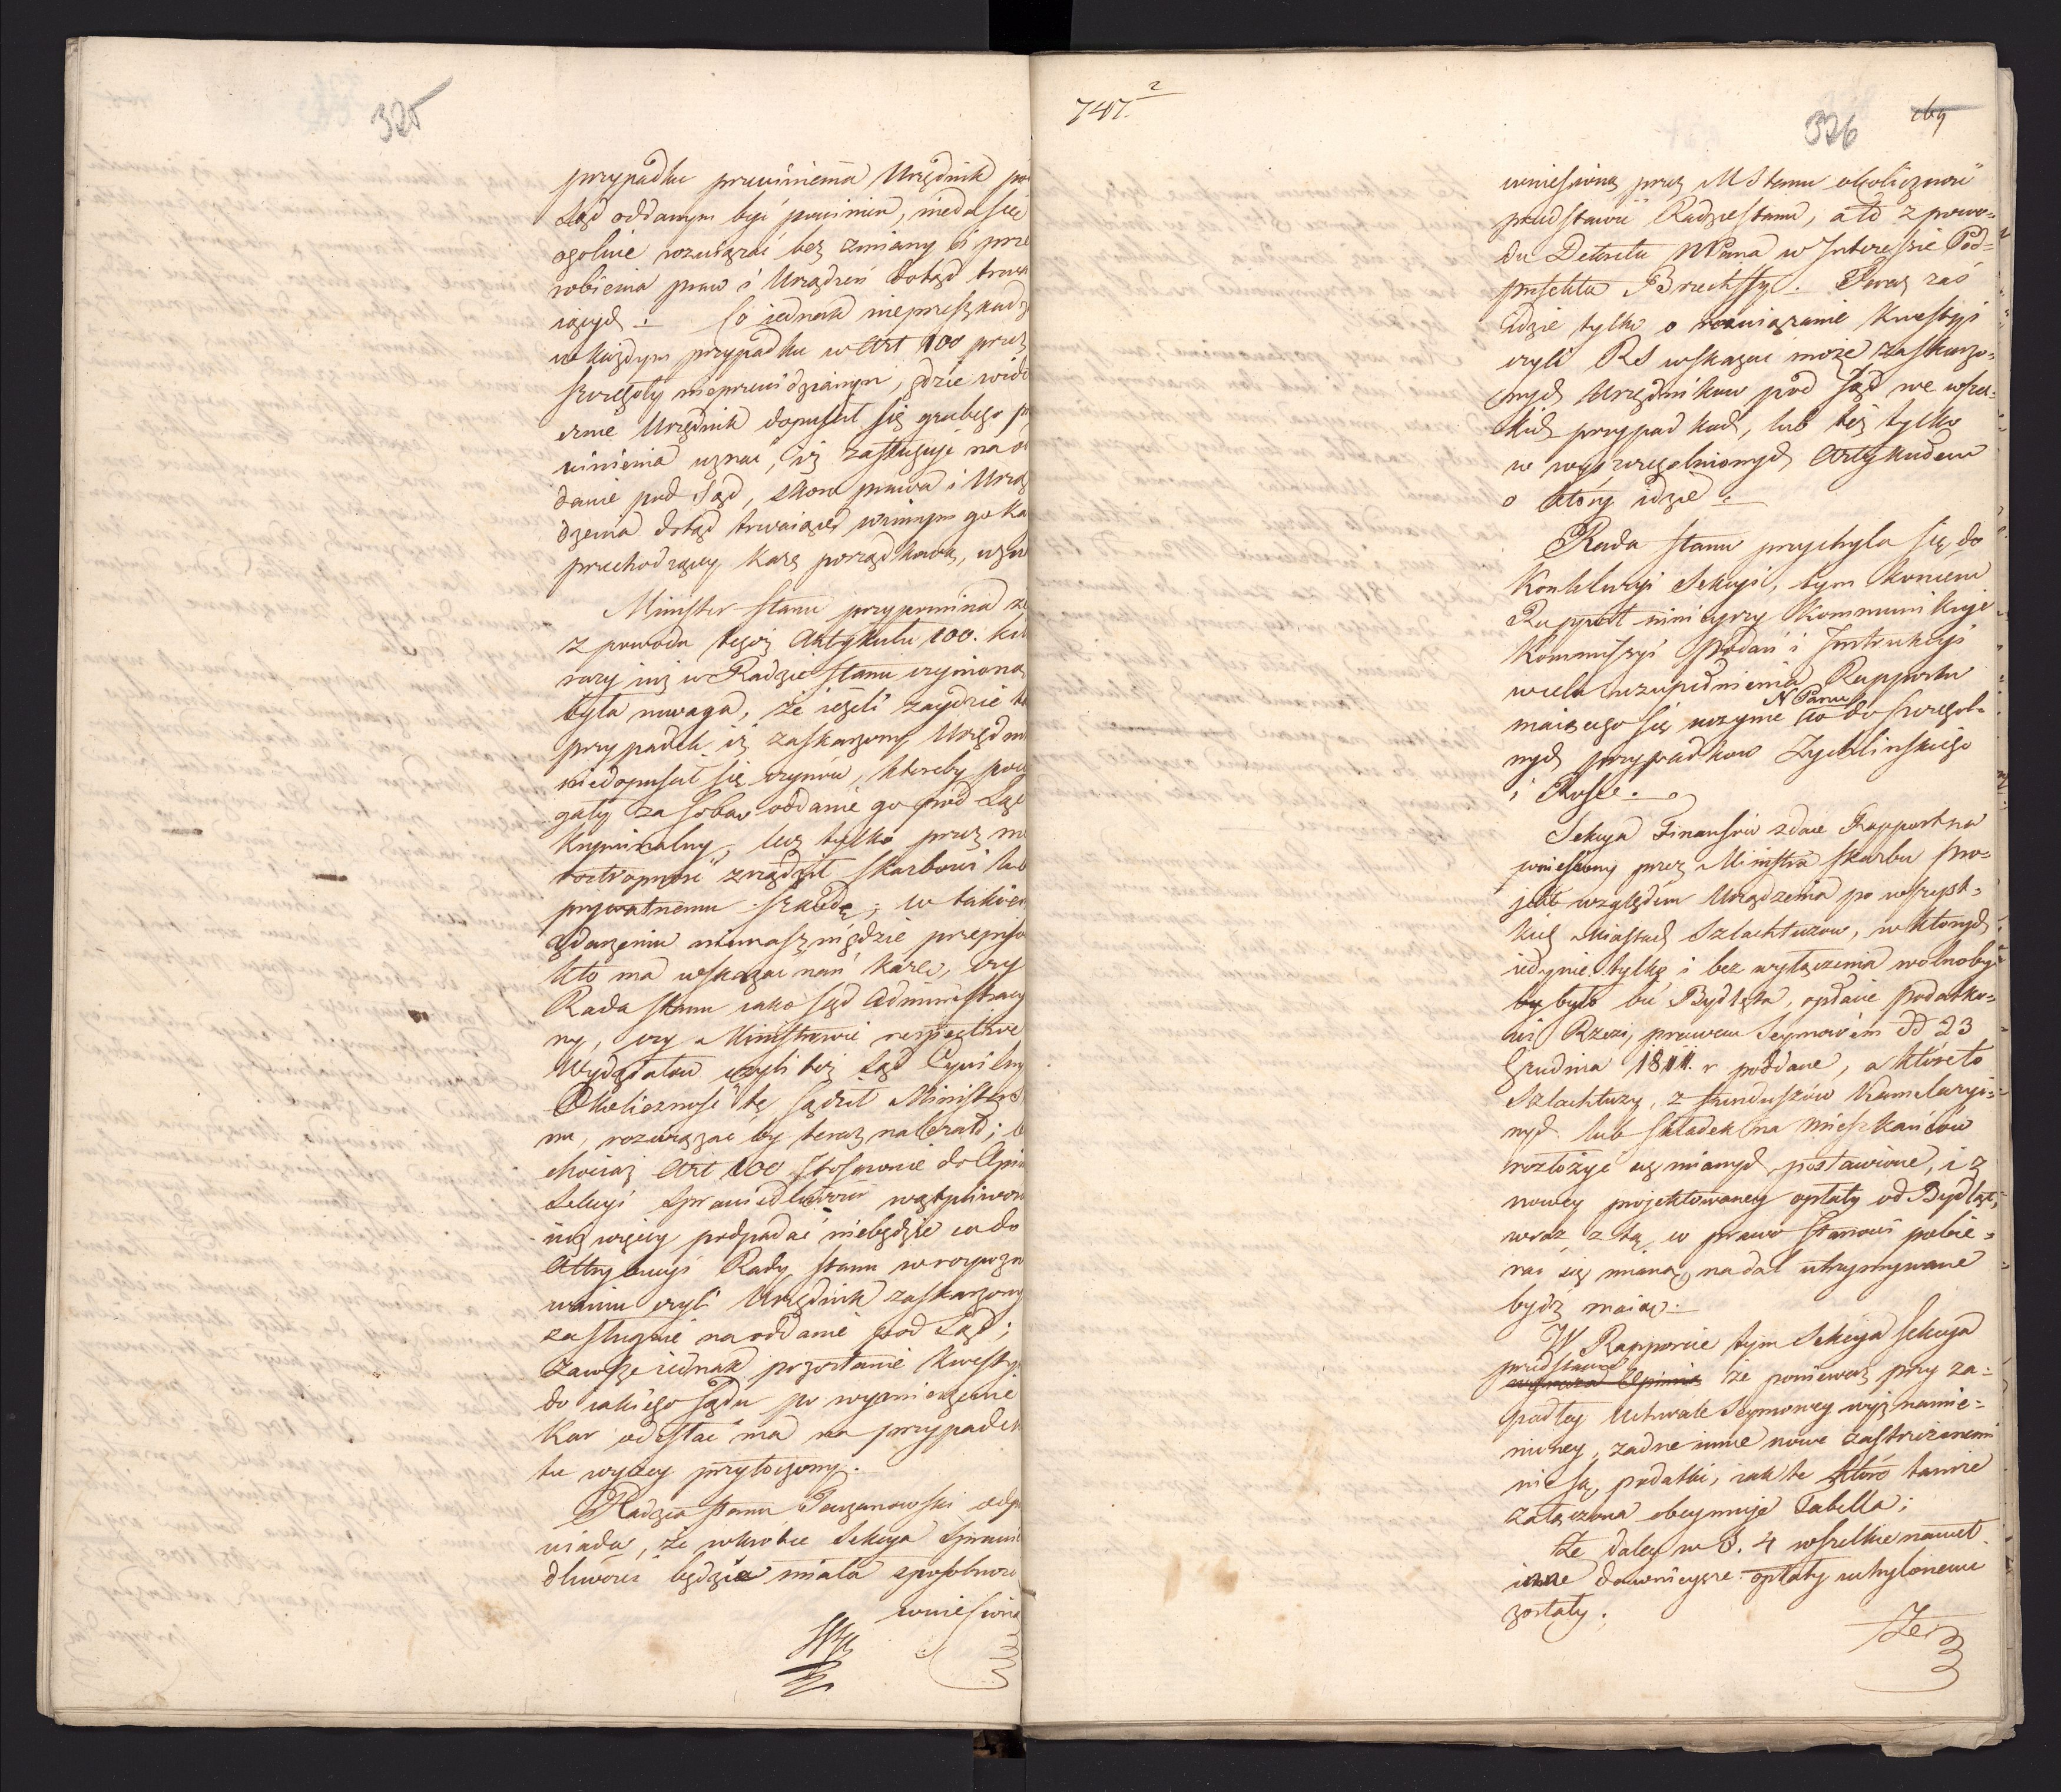 325
przypadku przewinienia Urzędnik po
Sąd oddanym być powinien, nieda się
ogolnie rozwiązać bez zmiany i prze
robienia praw i Urządzeń dotąd trwa
iących. Co iednak nieprzeszkadz
w każdym przypadku w Art 100 przez
szczegoły nieprzewidzianym, gdzie wido
cznie Urzędnik dopuścił się grubego p
winienia uznać, iż zasługuje na od
danie pod Sąd, skoro prawa i Urzą
dzenia dotąd trwaiące winnym go ka
przechodzącey karę porządkową, uzn
Minister Stanu przypomina ze
z powodu tegoż Artykułu 100. kil
razy iuż w Radzie Stanu czyniona
była uwaga, że ieżeli zaydzie ta
przypadek iż zaskarzony Urzędnik
niedopuścił się czynów, któreby pocią
gały za sobą oddanie go pod Sąd
kryminalny, lecz tylko przez nie
roztropność zrządził Skarbowi lub
prywatnemu szkodę; w takiem
zdarzeniu niemasz nigdzie przepisu
kto ma wskazać nań karę, czy
Rada Stanu iako Sąd Administracy
ny, czy Ministrowie respective
Wydziałów czyli też Sąd Cywilny
Okoliczność tę sądził Minister S
nu, rozwiązać by teraz należało; b
chociaż Art 100 stosownie do Opin
Sekcyi Sprawiedliwości wątpliwości
iuż więcey podpadać niebędzie co do
Attrybucyi Rady Stanu w rozpozna
waniu czyli Urzędnik zaskarzony
zasługuie na oddanie pod Sąd;
zawsze iednak pozostanie kwestya
do iakiego Sądu po wymierzenie
kar odesłać ma na przypadek
tu wyżey przytoczony.
Radzca Stanu odpo
wiada, że wkrótce Sekcya Sprawie
dliwości będzie miała sposobność
wniesioną
747. 2
326 169
wniesioną przez M Stanu okoliczność
przedstawić Radzie Stanu, a to z powo=
du Dekretu NPana w Interessie Pod=
prefekta Brzechffy. Teraz zaś
idzie tylko o rozwiązanie Kwestyi
czyli RS wskazać może zaskarzo=
nych Urzędnikow pod Sąd we wszel=
kich przypadkach, lub też tylko
w wyszczegolnionych Artykułem
o który idzie.
Rada Stanu przychyla się do
Konkluzyi Sekcyi, tym koncem
Rapport ninieyszy kommunikuje
Kommissyi Podań i Instrukcyi
w celu uzupełnienia Rapportu
maiącego się uczynić N Panu co do szczegol=
nych przypadkow Zychlinskiego
i Kosse.
Sekcya Finansów zdaie Rapport na
wniesiony przez Ministra Skarbu Pro=
jekt względem Urządzenia po wszyst=
kich Miastach Szlachtuzow, w których
iedynie tylko i bez wyłączenia wolnoby
by było bić Bydlęta, opłacie Podatko=
wi Rzezi, prawem Seymowem dd 23
Grudnia 1811. r poddane, a któreto
Szlachtuzy, z funduszów Kamelaryi=
nych lub składek na mieszkańców
rozłożyć się mianych, postawione, i z
nowey projektowaney opłaty od Bydląt,
wraz z tą w prawo Stanowi pobie=
rać się mianą, nadal utrzymywane
bydź maią.
W Rapporcie tym Sekcya Sekcya
przedstawia
wyraza Opinią że ponieważ przy za=
padłey Uchwale Seymowey wyż namie=
nioney, zadne inne nowe zastrzeżonemi
nie są, podatki, iak te które tamże
załączona obeymuje Tabella;
Że daley w §. 4 wszelkie nawet
inne dawnieysze opłaty uchylonemi
zostały.
Że